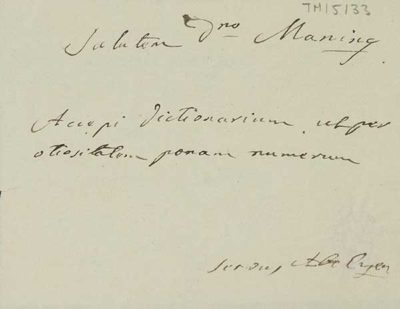 TM/5/33
Salutem Dno Maning
Accepi dictionarium ut per
otiositatem ponam numerum
servus